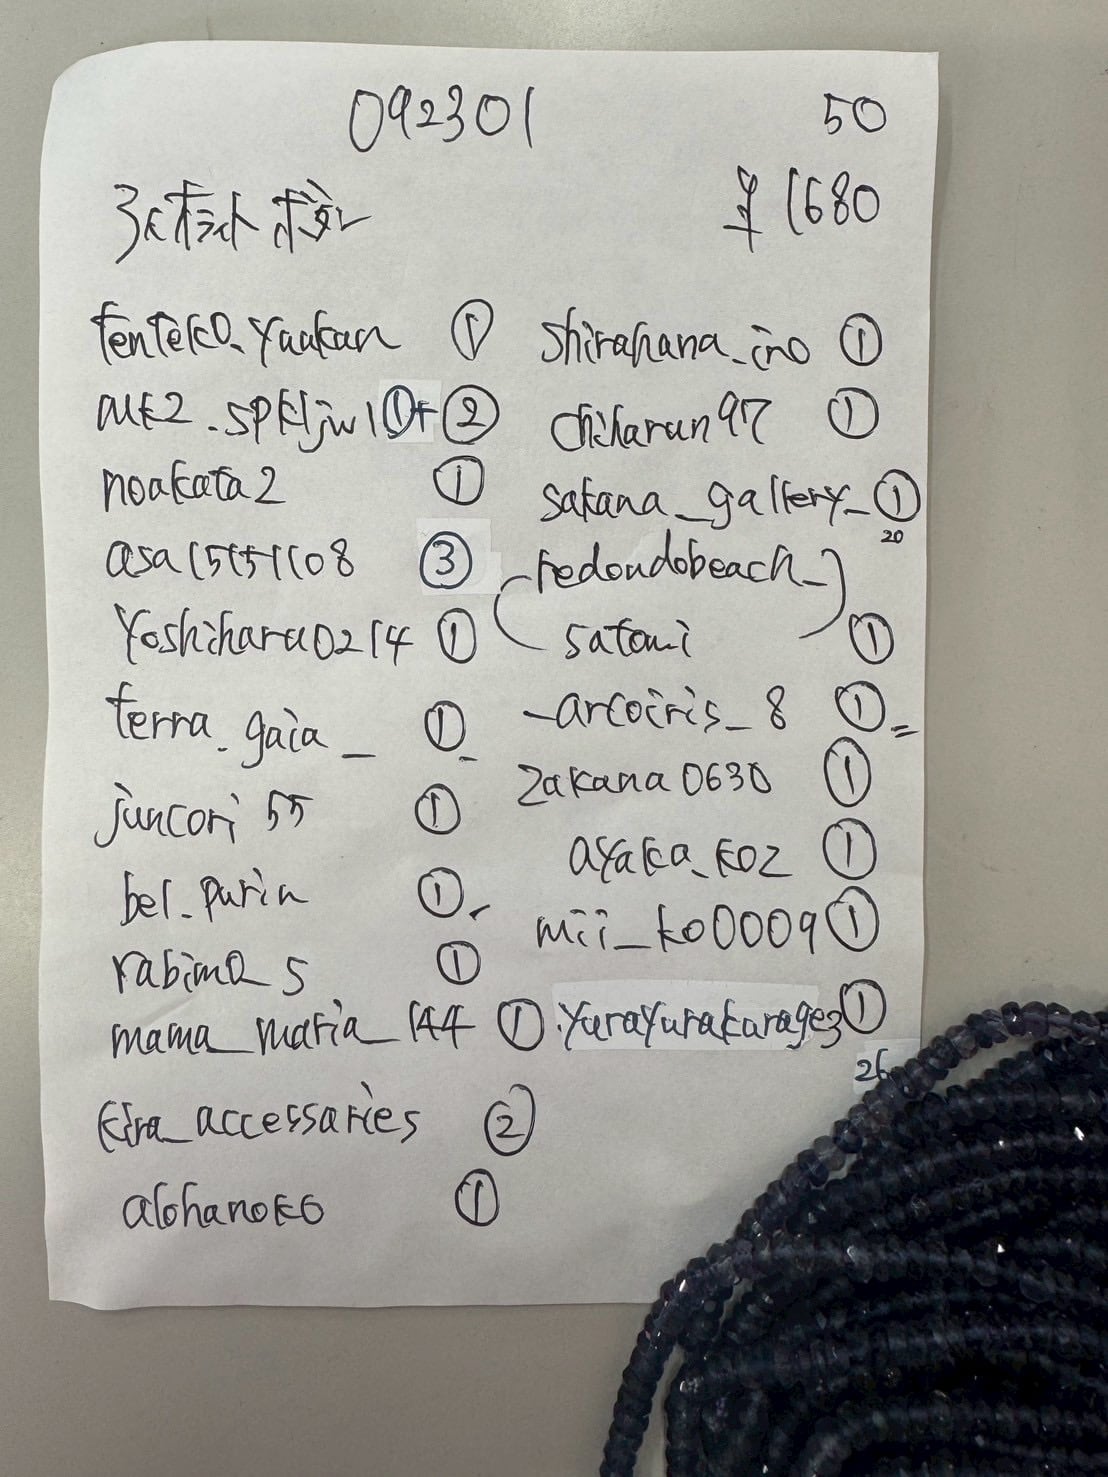 092301
50
¥1680
tenteko_yaakan ①
auk2.spkljw1 ①+②
noakata2 ①
asa15151108 ③
Yoshiharu0214 ①
terra_gaia_ ①
juncori55 ①
bel_purin ①
rabima_5 ①
mama_maria_144 ①
kira_accessaries ②
alohanoko ①
shirahana_ino ①
chiharun97 ①
sakana_gallery_ ①
20
(redondobeach_)
satomi ①
_arcoiris_8 ①
zakana0630 ①
ayaka_koz ①
mii_ko0009 ①
yurayurakurage3 ①
26